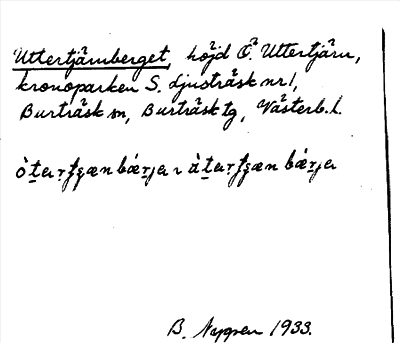 Uttertjärnberget, höjd Ö. Uttertjärn,
kronoparken S. Ljusträsk nr 1,
Burträsk sn, Burträsk tg, Västerb. l.
B. Nygren 1933.